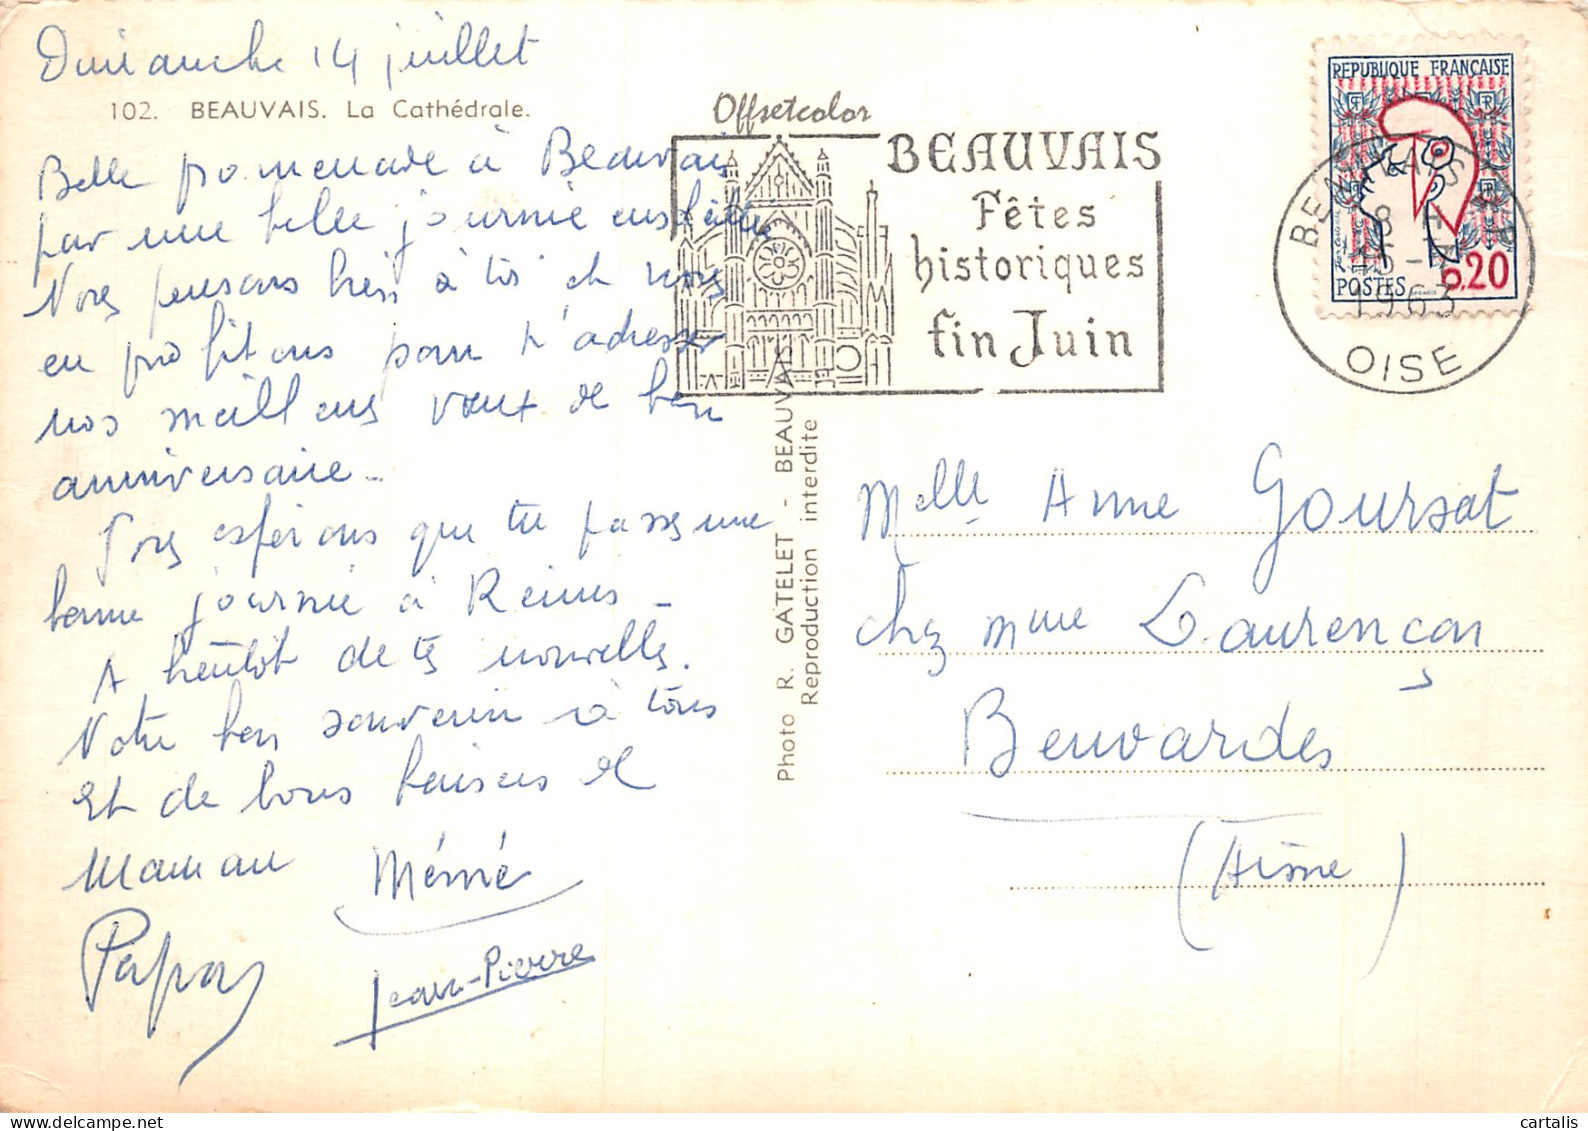 Dimanche 14 juillet
102. BEAUVAIS. La Cathédrale.
Belle promenade à Beauvais
par une belle journée ensoleillée
Nous pensons bien à toi et nous
en profitons pour t'adresser
nos meilleurs vœux de bon
anniversaire -
Nous espérons que tu passes une
bonne journée à Reims -
A bientôt de tes nouvelles.
Votre bon souvenir à tous
et de bons baisers de
Maman Mémé
Papa
Jean-Pierre
Offsetcolor
BEAUVAIS
Fêtes
historiques
fin Juin
Photo R. GATELET - BEAUVAIS
Reproduction interdite
REPUBLIQUE FRANÇAISE
POSTES 0,20
BEAUVAIS
15-7
1963
OISE
Melle Anne Goursat
chez Mme Laurençon
Beuvardes
(Aisne)
cartalis